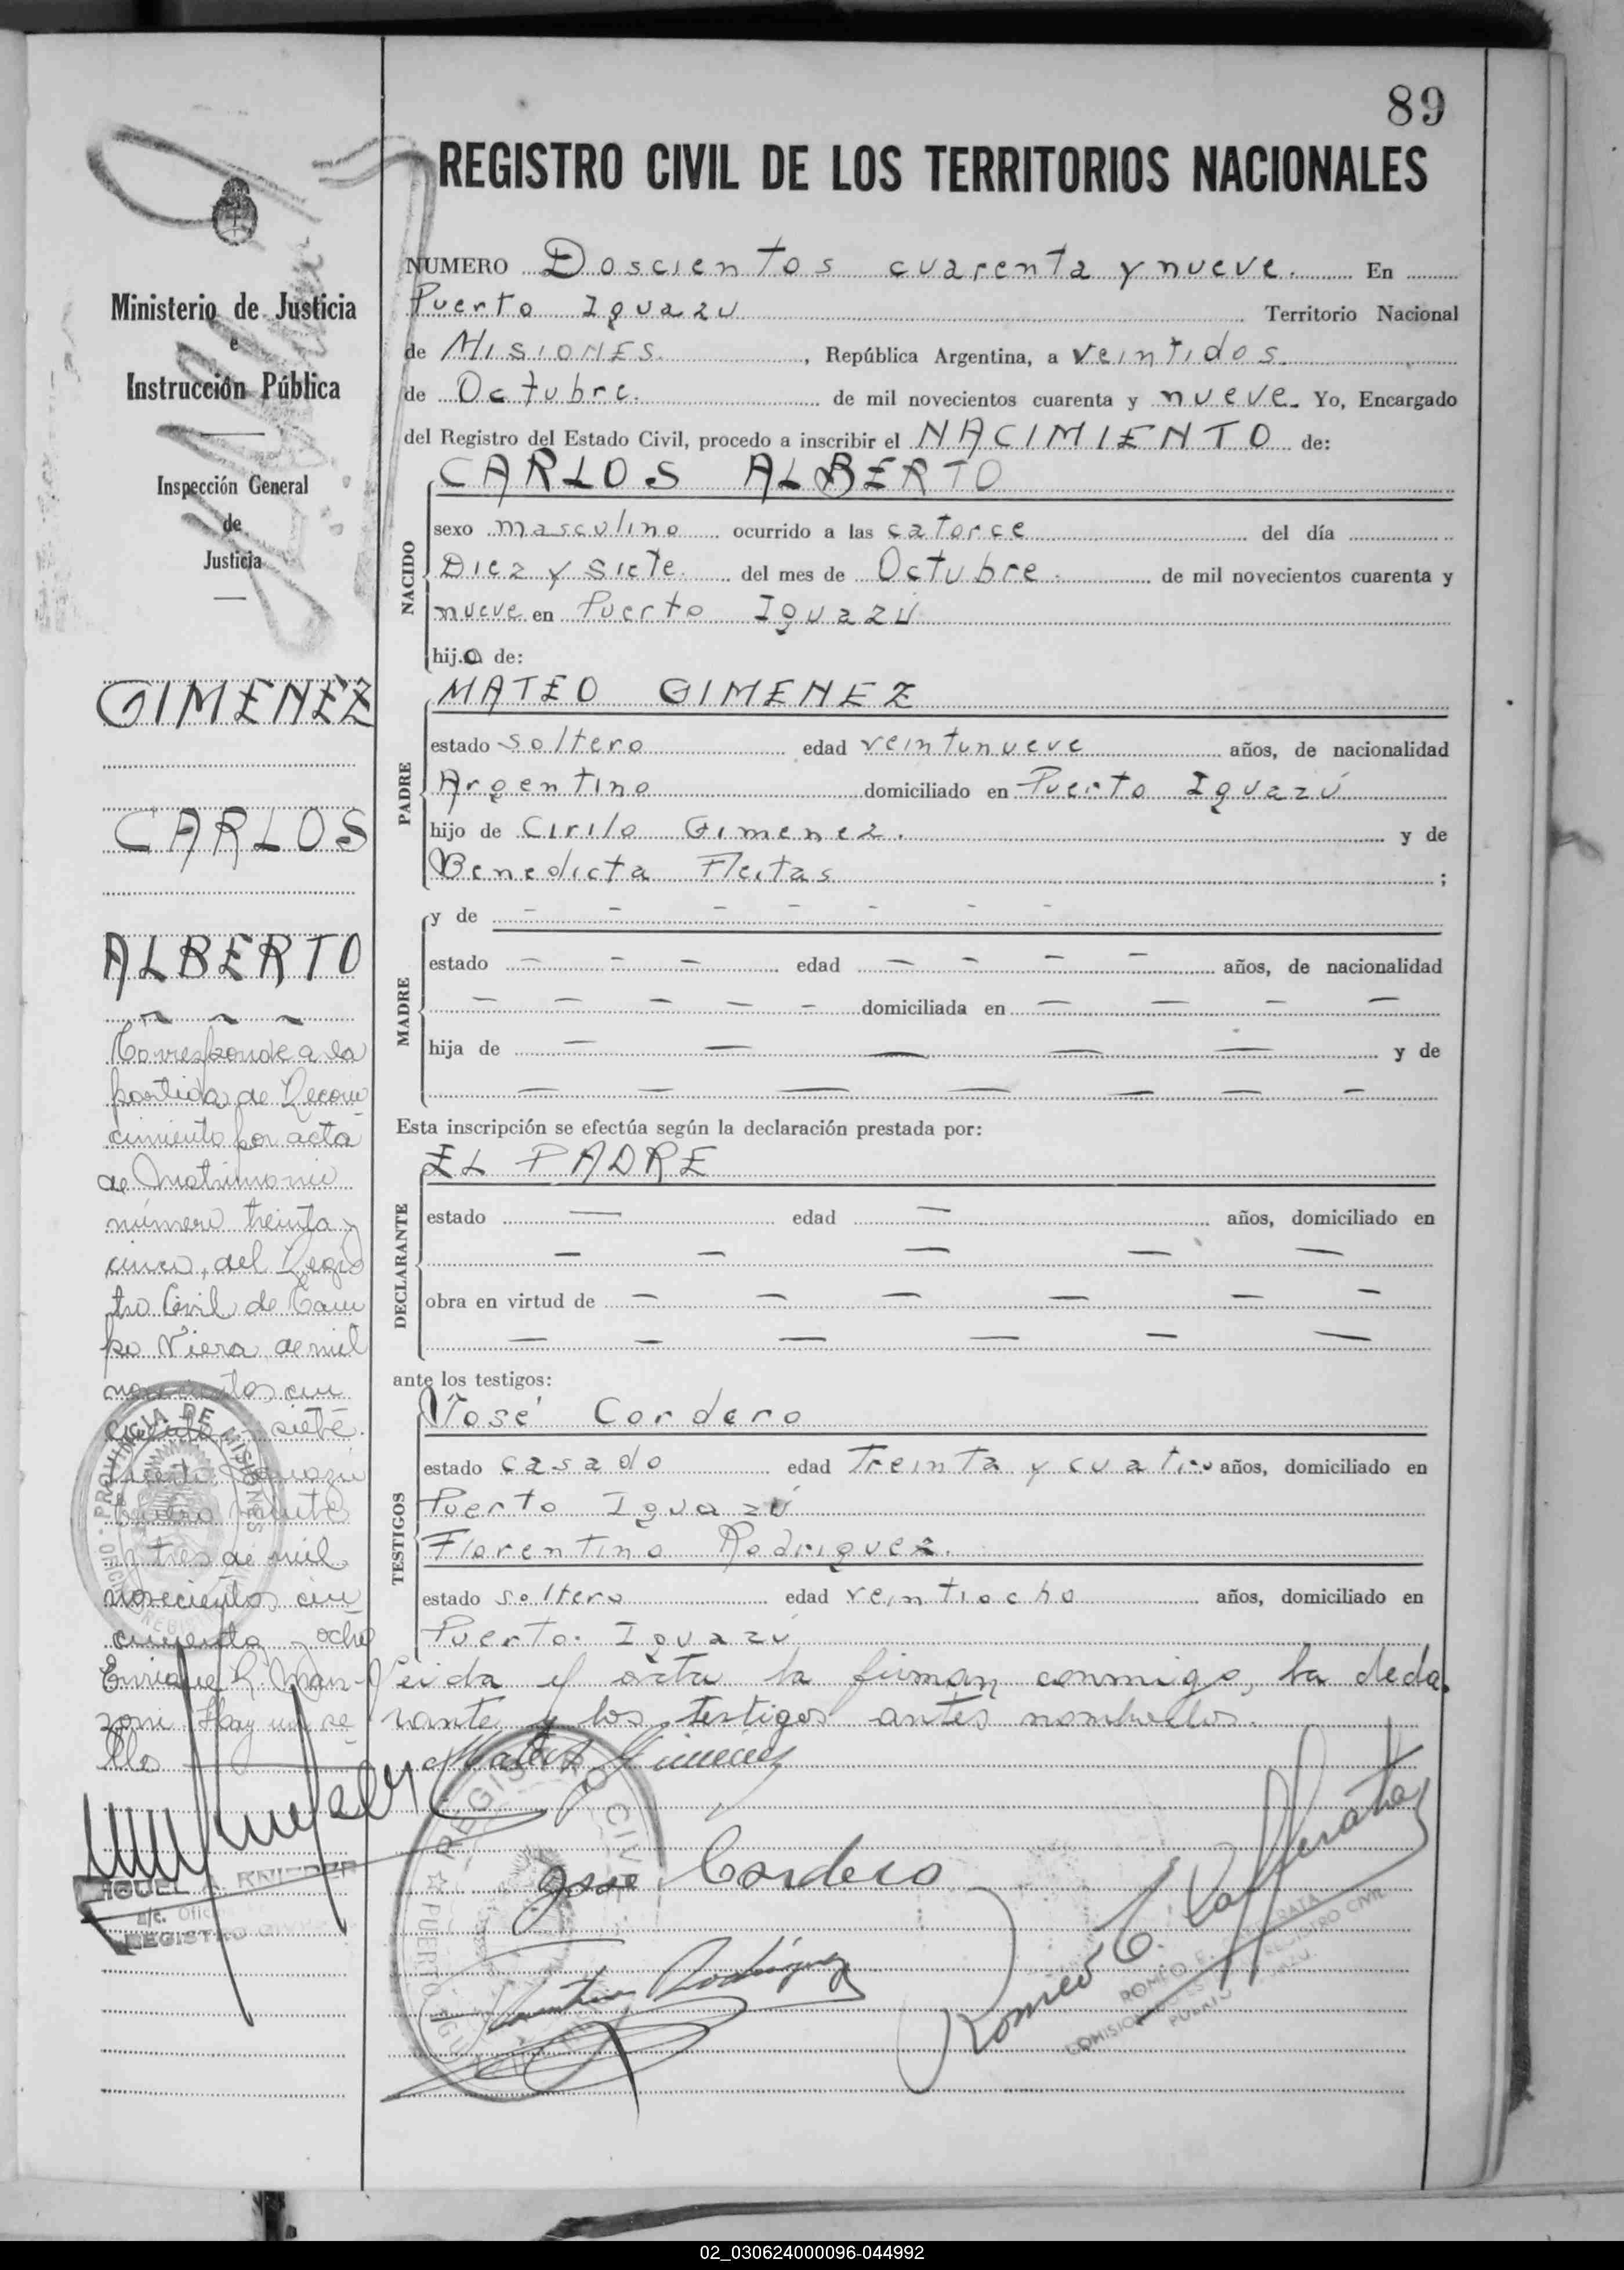 89
REGISTRO CIVIL DE LOS TERRITORIOS NACIONALES
Ministerio de Justicia
e
Instrucción Pública
Inspección General
de
Justicia
GIMENEZ
CARLOS
ALBERTO
Corresponde a la
partida de Recono
cimiento por acta
de Matrimonio
número treinta y
cinco, del Regis
tro Civil de Cam
po Viera, de mil
novecientos cin
cuenta y siete.
Puerto Iguazú
Enero veinte
y tres de mil
novecientos cin
cuenta y ocho
Enrique R. Man
zoni Hay un se
llo
PROVINCIA DE MISIONES
MIGUEL A.
a/c. Ofic
REGISTRO CIVIL
NUMERO Doscientos cuarenta y nueve. En
Puerto Iguazu Territorio Nacional
de MISIONES. , República Argentina, a veintidos.
de Octubre. de mil novecientos cuarenta y nueve. Yo, Encargado
del Registro del Estado Civil, procedo a inscribir el NACIMIENTO de:
NACIDO
CARLOS ALBERTO
sexo masculino ocurrido a las catorce del día
Diez y siete. del mes de Octubre. de mil novecientos cuarenta y
nueve en Puerto Iguazú
hijo de:
PADRE
MATEO GIMENEZ
estado soltero edad veintinueve años, de nacionalidad
Argentino domiciliado en Puerto Iguazú
hijo de Cirilo Gimenez. y de
Benedicta Fleitas ;
MADRE
y de - - - - - - -
estado - - - edad - - - - años, de nacionalidad
- - - - - domiciliada en - - - -
hija de - - - - - y de
- - - - - - -
Esta inscripción se efectúa según la declaración prestada por:
DECLARANTE
EL PADRE
estado - edad - años, domiciliado en
- - - - -
obra en virtud de - - - - - -
- - - - - -
ante los testigos:
TESTIGOS
José Cordero
estado casado edad Treinta y cuatro años, domiciliado en
Puerto Iguazú
Florentino Rodriguez.
estado soltero edad veintiocho años, domiciliado en
Puerto Iguazú
Leida el acta la firman conmigo, la decla
rante y los testigos antes nombrados.
Mateo Gimenez
REGISTRO CIVIL
PUERTO IGUAZU
Jose Cordero
Florentino Rodriguez
Romeo E. Cafferata
ROMEO E. CAFFERATA
REGISTRO CIVIL
02_030624000096-044992